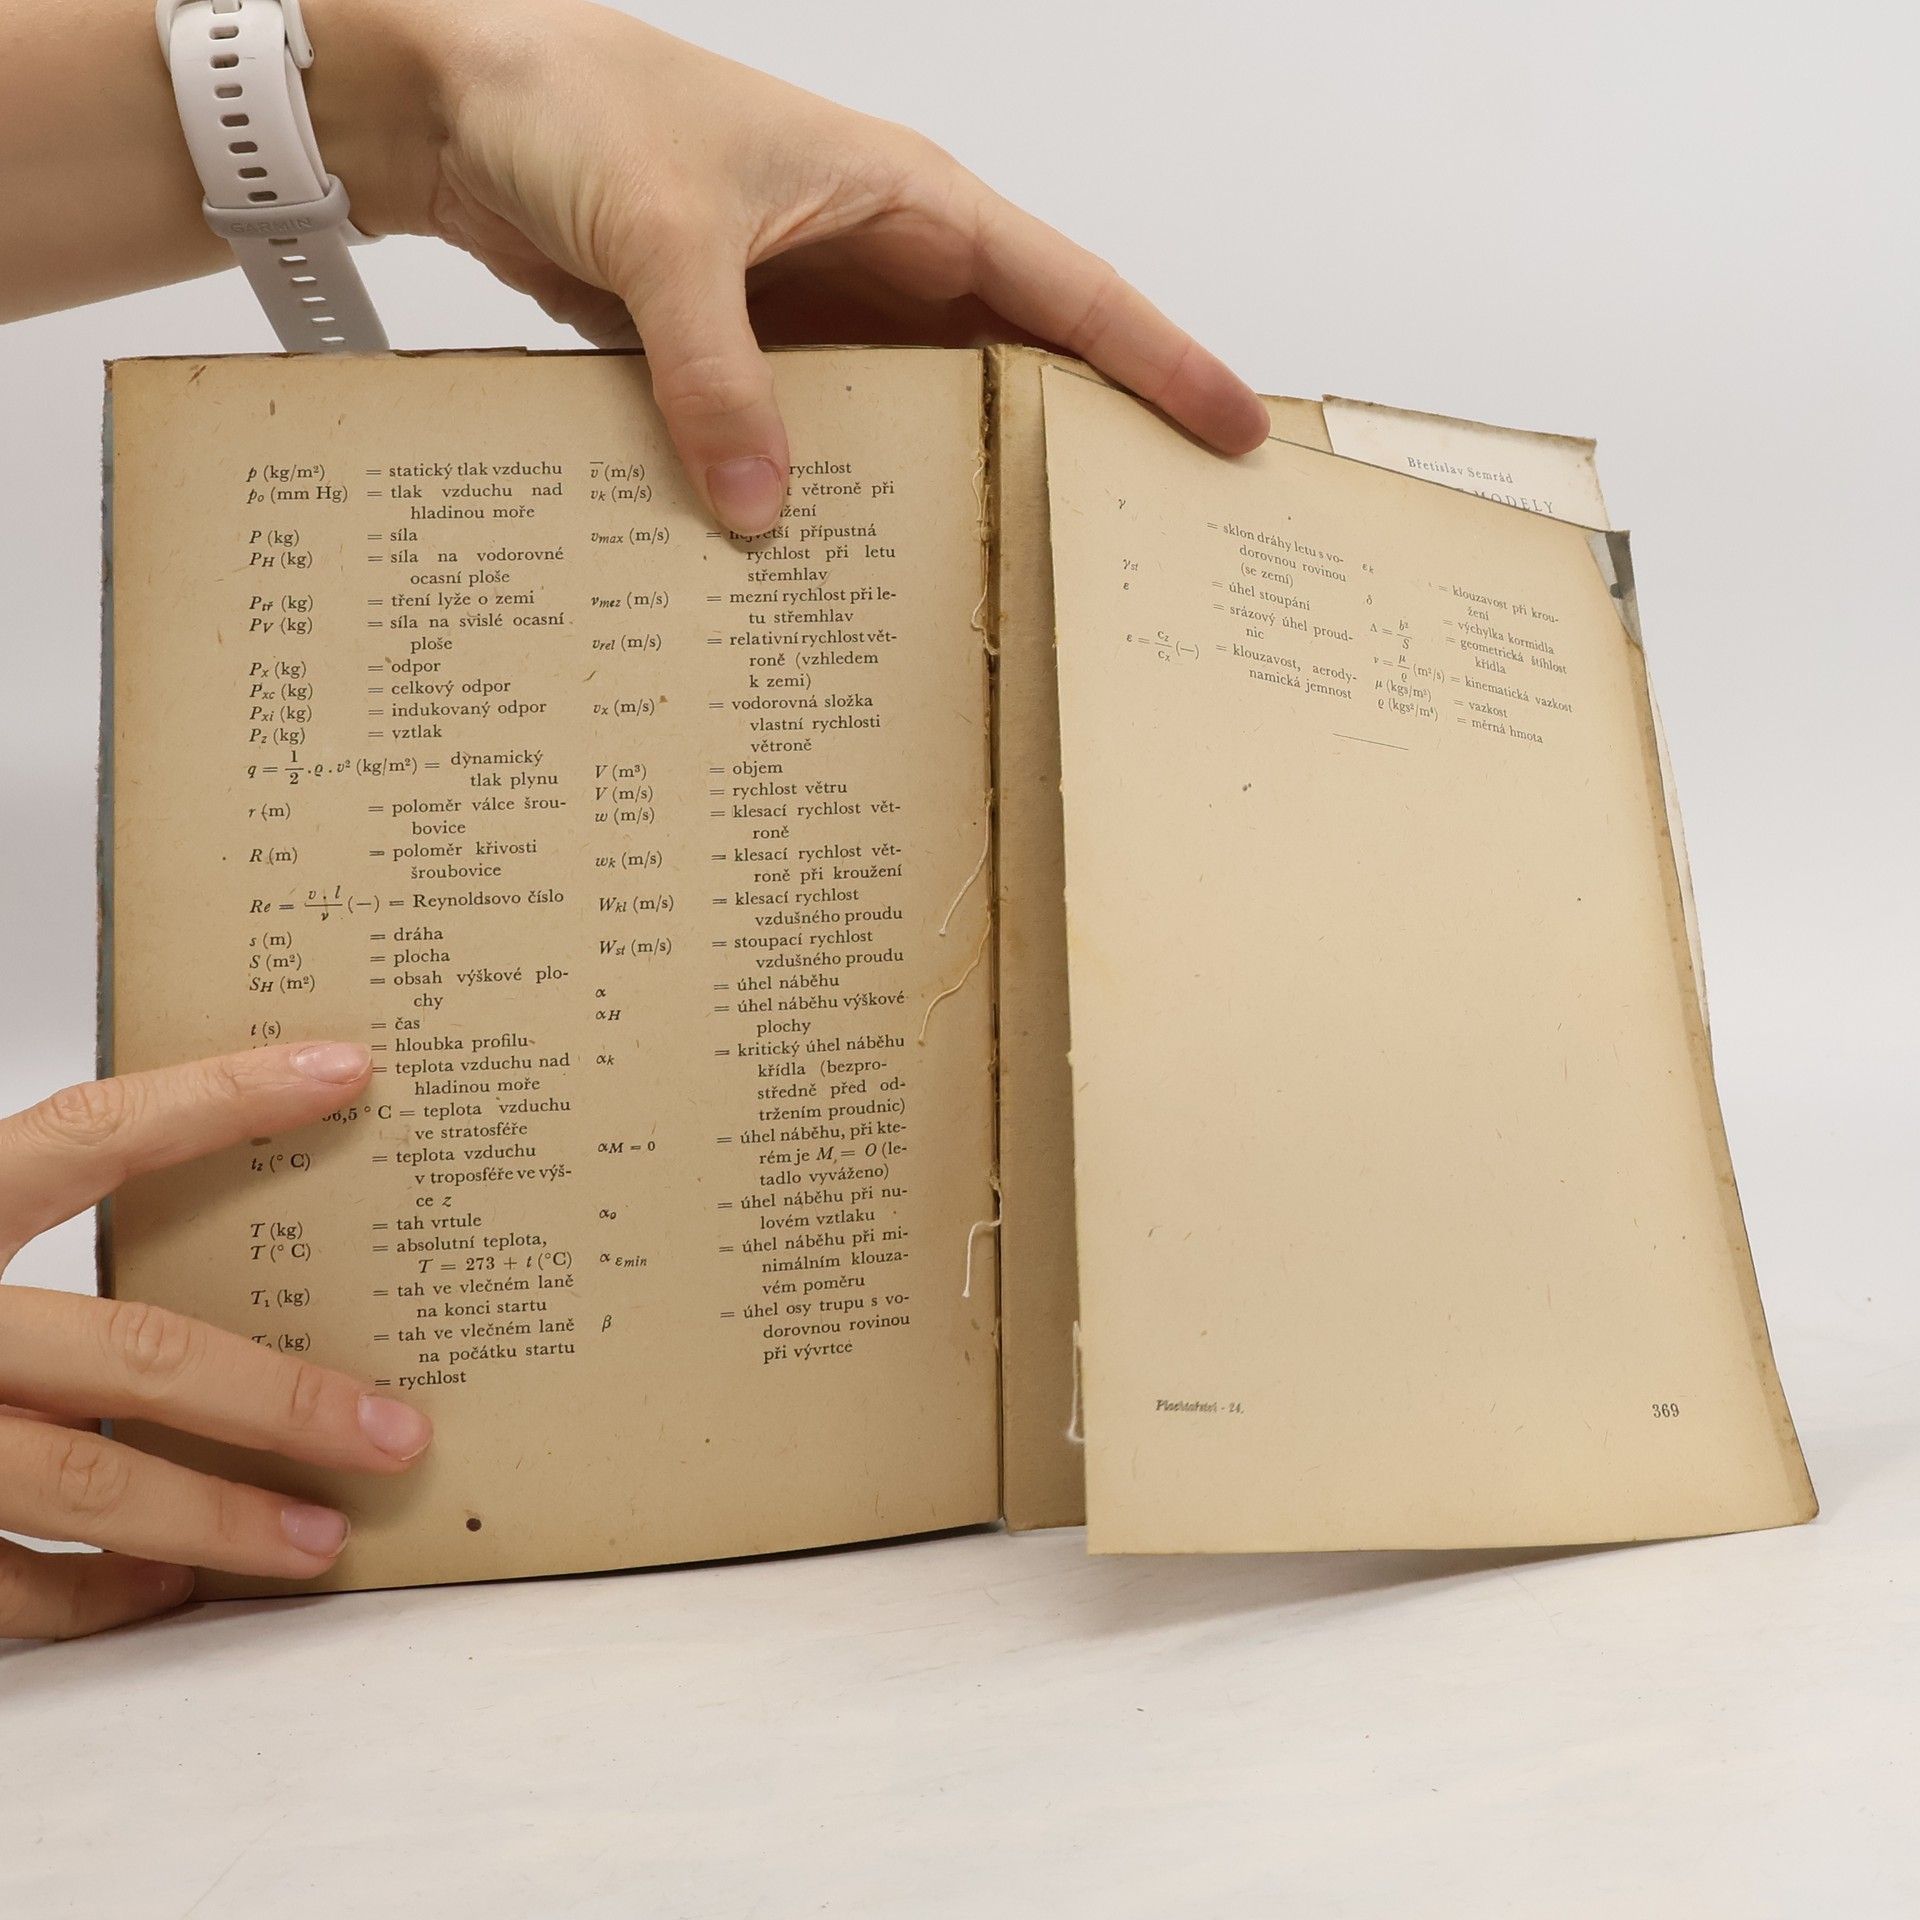 GARMIN
p (kg/m²) = statický tlak vzduchu
p₀ (mm Hg) = tlak vzduchu nad
hladinou moře
P (kg) = síla
P_H (kg) = síla na vodorovné
ocasní ploše
P_tř (kg) = tření lyže o zemi
P_V (kg) = síla na svislé ocasní
ploše
P_x (kg) = odpor
P_xc (kg) = celkový odpor
P_xi (kg) = indukovaný odpor
P_z (kg) = vztlak
q = 1/2 . ϱ . v² (kg/m²) = dynamický
tlak plynu
r (m) = poloměr válce šrou-
bovice
R (m) = poloměr křivosti
šroubovice
Re = v . l / ν (—) = Reynoldsovo číslo
s (m) = dráha
S (m²) = plocha
S_H (m²) = obsah výškové plo-
chy
t (s) = čas
= hloubka profilu
= teplota vzduchu nad
hladinou moře
56,5 ° C = teplota vzduchu
ve stratosféře
t_z (° C) = teplota vzduchu
v troposféře ve výš-
ce z
T (kg) = tah vrtule
T (° C) = absolutní teplota,
T = 273 + t (°C)
T₁ (kg) = tah ve vlečném laně
na konci startu
(kg) = tah ve vlečném laně
na počátku startu
= rychlost
v̅ (m/s) rychlost
v_k (m/s) větroně při
v_max (m/s) = největší přípustná
rychlost při letu
střemhlav
v_mez (m/s) = mezní rychlost při le-
tu střemhlav
v_rel (m/s) = relativní rychlost vět-
roně (vzhledem
k zemi)
v_x (m/s) = vodorovná složka
vlastní rychlosti
větroně
V (m³) = objem
V (m/s) = rychlost větru
w (m/s) = klesací rychlost vět-
roně
w_k (m/s) = klesací rychlost vět-
roně při kroužení
W_kl (m/s) = klesací rychlost
vzdušného proudu
W_st (m/s) = stoupací rychlost
vzdušného proudu
α = úhel náběhu
α_H = úhel náběhu výškové
plochy
α_k = kritický úhel náběhu
křídla (bezpro-
středně před od-
tržením proudnic)
α_M = 0 = úhel náběhu, při kte-
rém je M = O (le-
tadlo vyváženo)
α₀ = úhel náběhu při nu-
lovém vztlaku
α ε_min = úhel náběhu při mi-
nimálním klouza-
vém poměru
β = úhel osy trupu s vo-
dorovnou rovinou
při vývrtce
Břetislav Semrád
MODELY
γ = sklon dráhy letu s vo-
dorovnou rovinou
(se zemí)
γ_st = úhel stoupání
ε = srázový úhel proud-
nic
ε = c_z / c_x (—) = klouzavost, aerody-
namická jemnost
ε_k = klouzavost při krou-
žení
δ = výchylka kormidla
Λ = b² / S = geometrická štíhlost
křídla
ν = μ / ϱ (m²/s) = kinematická vazkost
μ (kgs/m²) = vazkost
ϱ (kgs²/m⁴) = měrná hmota
Plachtařství - 24.
369